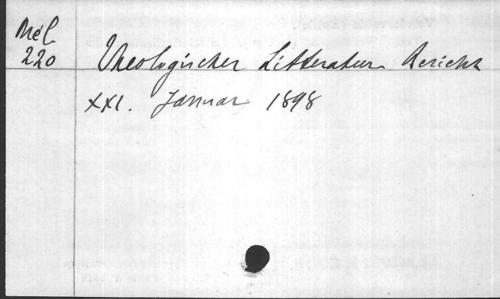 Mél
220
Theologischer Litteratur Bericht
XXI. Januar 1898